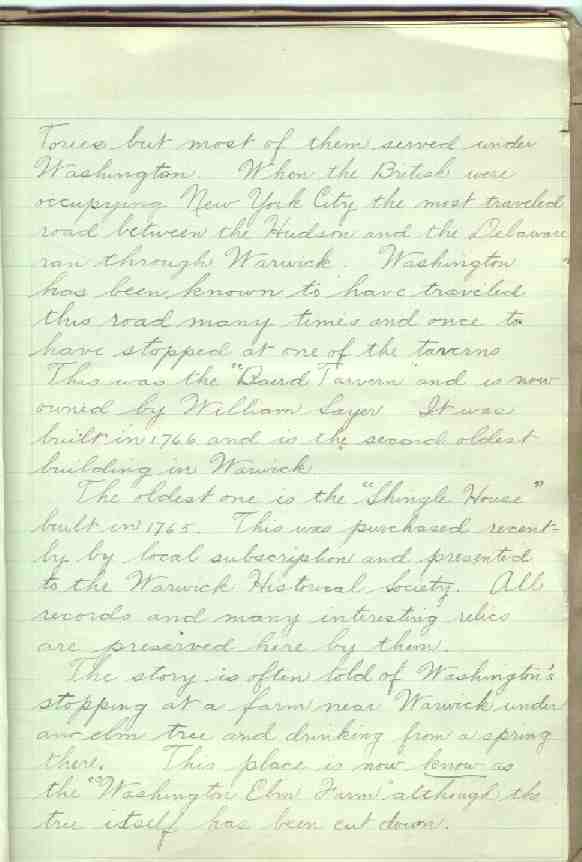 Tories but most of them served under
Washington. When the British were
occupying New York City the most traveled
road between the Hudson and the Delaware
ran through Warwick. Washington
has been known to have traveled
this road many times and once to
have stopped at one of the taverns
This was the "Baird Tarvern" and is now
owned by William Sayer It was
built in 1766 and is the second oldest
building in Warwick
The oldest one is the "Shingle House"
built in 1765. This was purchased recent-
ly by local subscription and presented
to the Warwick Historical Society. All
records and many interesting relics
are preserved here by them.
The story is often told of Washington's
stopping at a farm near Warwick under
an elm tree and drinking from a spring
there. This place is now know as
the "Washington Elm Farm" although the
tree itself has been cut down.